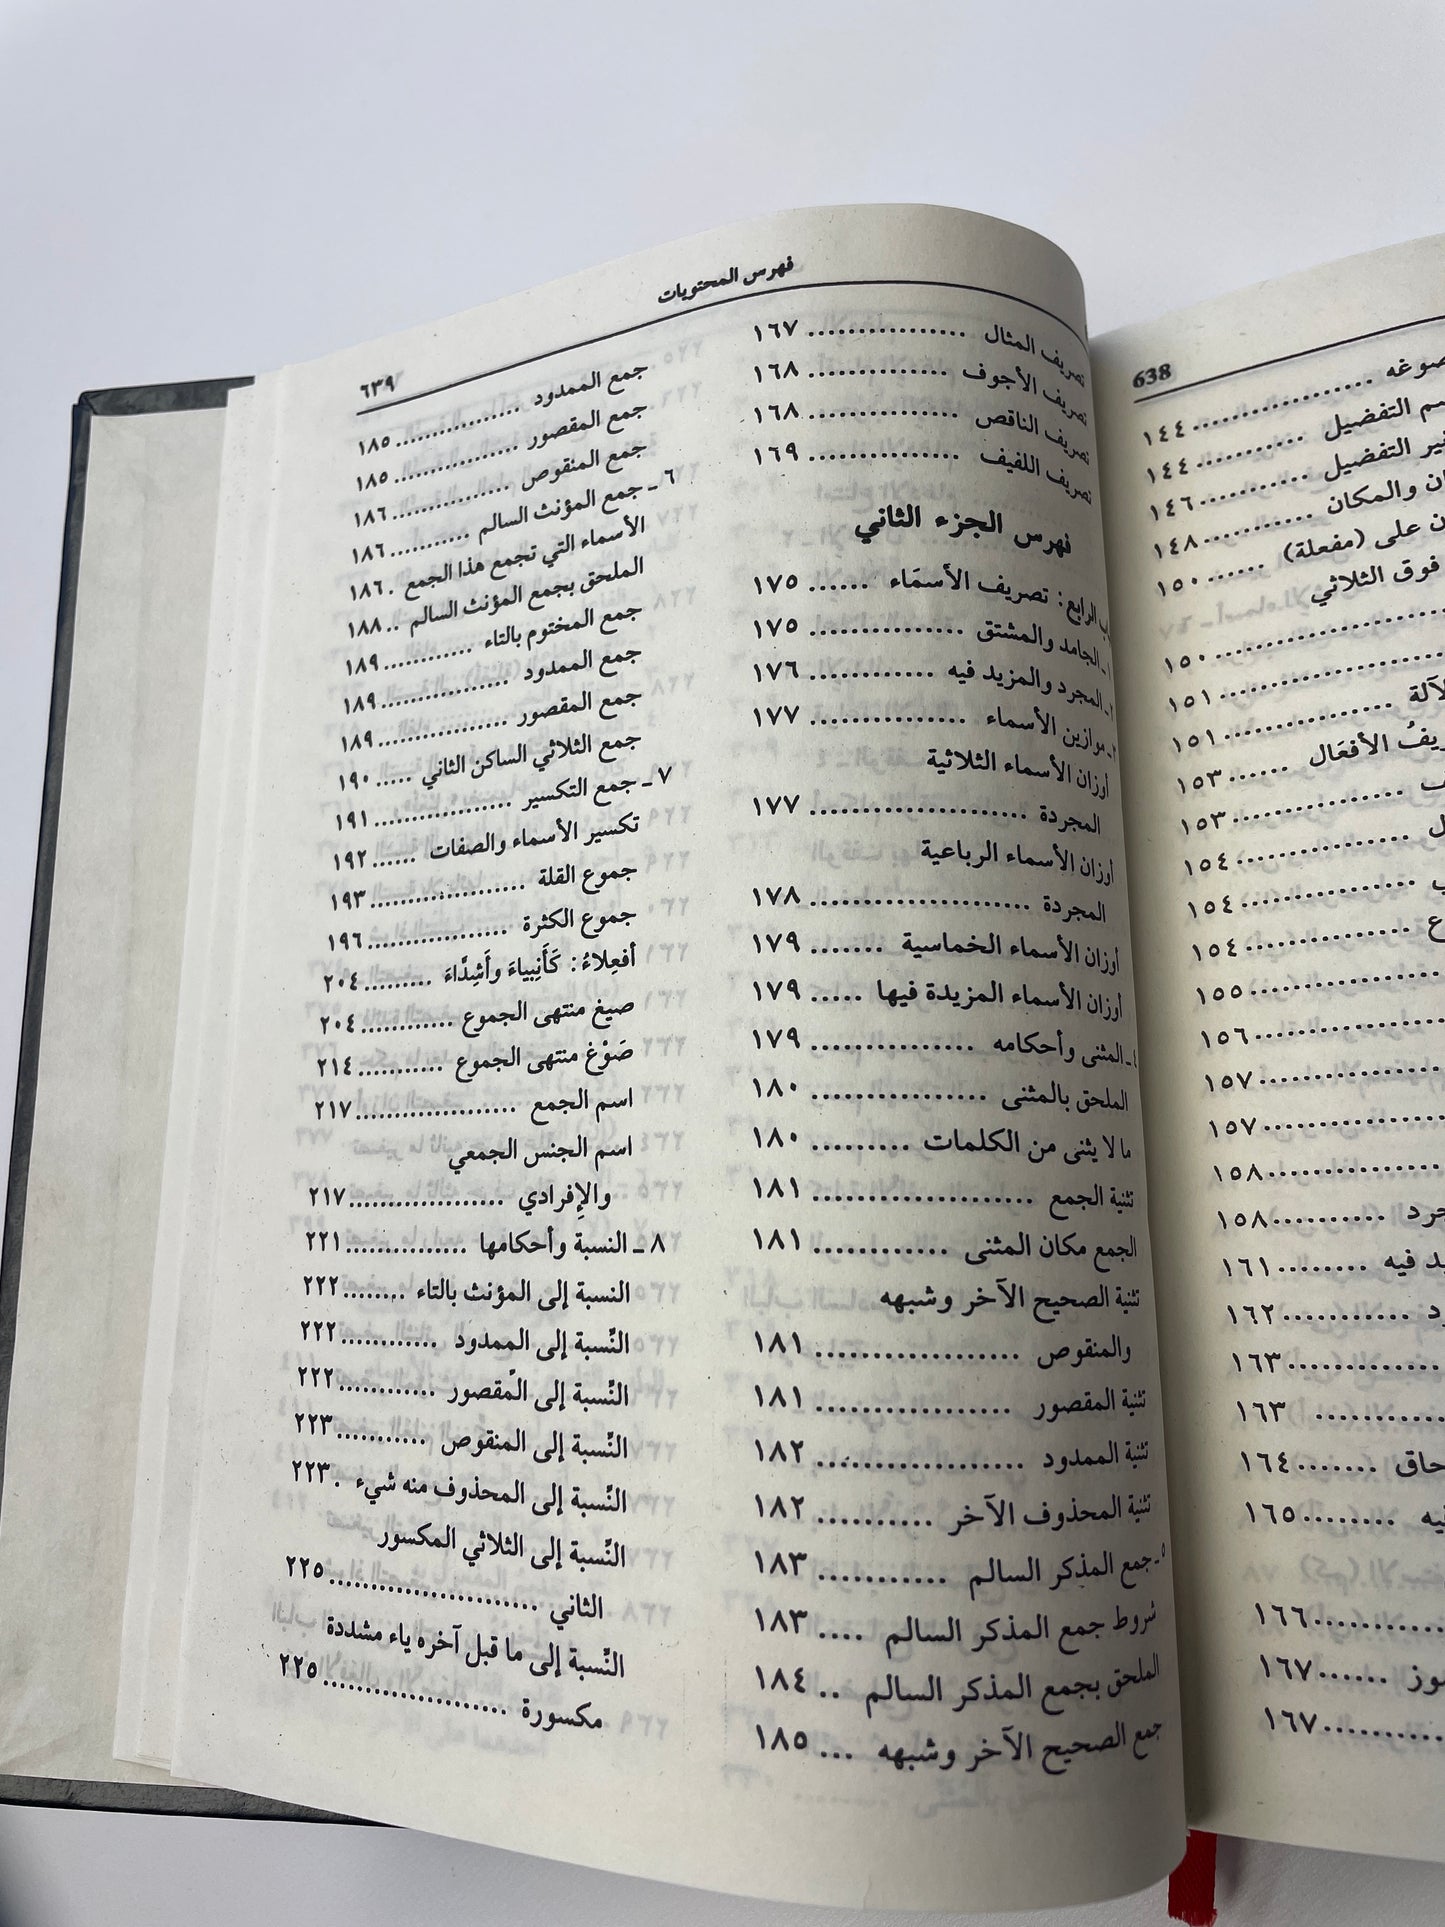 638
صوغه ................. ١٤٤
سم التفضيل ........... ١٤٤
التفضيل ........... ١٤٦
والمكان ........... ١٤٨
على (مفعلة) ...... ١٥٠
فوق الثلاثي
١٥٠
١٥١
١٥١
الأفعَال ...... ١٥٣
١٥٣
١٥٤
١٥٤
١٥٤
١٥٥
١٥٦
١٥٧
١٥٧
١٥٨
١٥٨
فيه ........ ١٦١
١٦٢
١٦٣
١٦٣
١٦٤
١٦٥
١٦٦
١٦٧
١٦٧
فهرس المحتويات
٦٣٩
تصريف المثال ................ ١٦٧
تصريف الأجوف ............. ١٦٨
تصريف الناقص ............... ١٦٨
تصريف اللفيف ............... ١٦٩
فهرس الجزء الثاني
الرابع: تصريف الأسمَاء ...... ١٧٥
الجامد والمشتق ............... ١٧٥
المجرد والمزيد فيه ............. ١٧٦
موازين الأسماء ............... ١٧٧
أوزان الأسماء الثلاثية
المجردة ...................... ١٧٧
أوزان الأسماء الرباعية
المجردة ...................... ١٧٨
أوزان الأسماء الخماسية ....... ١٧٩
أوزان الأسماء المزيدة فيها ..... ١٧٩
٤ ـ المثنى وأحكامه ................ ١٧٩
الملحق بالمثنى ................. ١٨٠
ما لا يثنى من الكلمات .......... ١٨٠
تثنية الجمع ...................... ١٨١
الجمع مكان المثنى ............. ١٨١
تثنية الصحيح الآخر وشبهه
والمنقوص .................... ١٨١
تثنية المقصور ................... ١٨١
تثنية الممدود .................... ١٨٢
تثنية المحذوف الآخر ............ ١٨٢
٥ ـ جمع المذكر السالم ............. ١٨٣
شروط جمع المذكر السالم .... ١٨٣
الملحق بجمع المذكر السالم .. ١٨٤
جمع الصحيح الآخر وشبهه ... ١٨٥
جمع الممدود ................. ١٨٥
جمع المقصور ................. ١٨٥
جمع المنقوص ................ ١٨٦
٦ ـ جمع المؤنث السالم ........... ١٨٦
الأسماء التي تجمع هذا الجمع . ١٨٦
الملحق بجمع المؤنث السالم .. ١٨٨
جمع المختوم بالتاء ............. ١٨٩
جمع الممدود ................. ١٨٩
جمع المقصور ................. ١٨٩
جمع الثلاثي الساكن الثاني ..... ١٩٠
٧ ـ جمع التكسير .................. ١٩١
تكسير الأسماء والصفات ...... ١٩٢
جموع القلة .................... ١٩٣
جموع الكثرة .................. ١٩٦
أفعِلاءُ: كَأَنبِياءَ وأَشِدَّاءَ .......... ٢٠٤
صيغ منتهى الجموع ............ ٢٠٤
صَوْغ منتهى الجموع ........... ٢١٤
اسم الجمع .................... ٢١٧
اسم الجنس الجمعي
والإفرادي .................... ٢١٧
٨ ـ النسبة وأحكامها ............... ٢٢١
النسبة إلى المؤنث بالتاء ........ ٢٢٢
النِّسبة إلى الممدود ............ ٢٢٢
النِّسبة إلى المقصور ............ ٢٢٢
النِّسبة إلى المنقوص ........... ٢٢٣
النِّسبة إلى المحذوف منه شيء . ٢٢٣
النِّسبة إلى الثلاثي المكسور
الثاني ......................... ٢٢٥
النِّسبة إلى ما قبل آخره ياء مشددة
مكسورة ...................... ٢٢٥